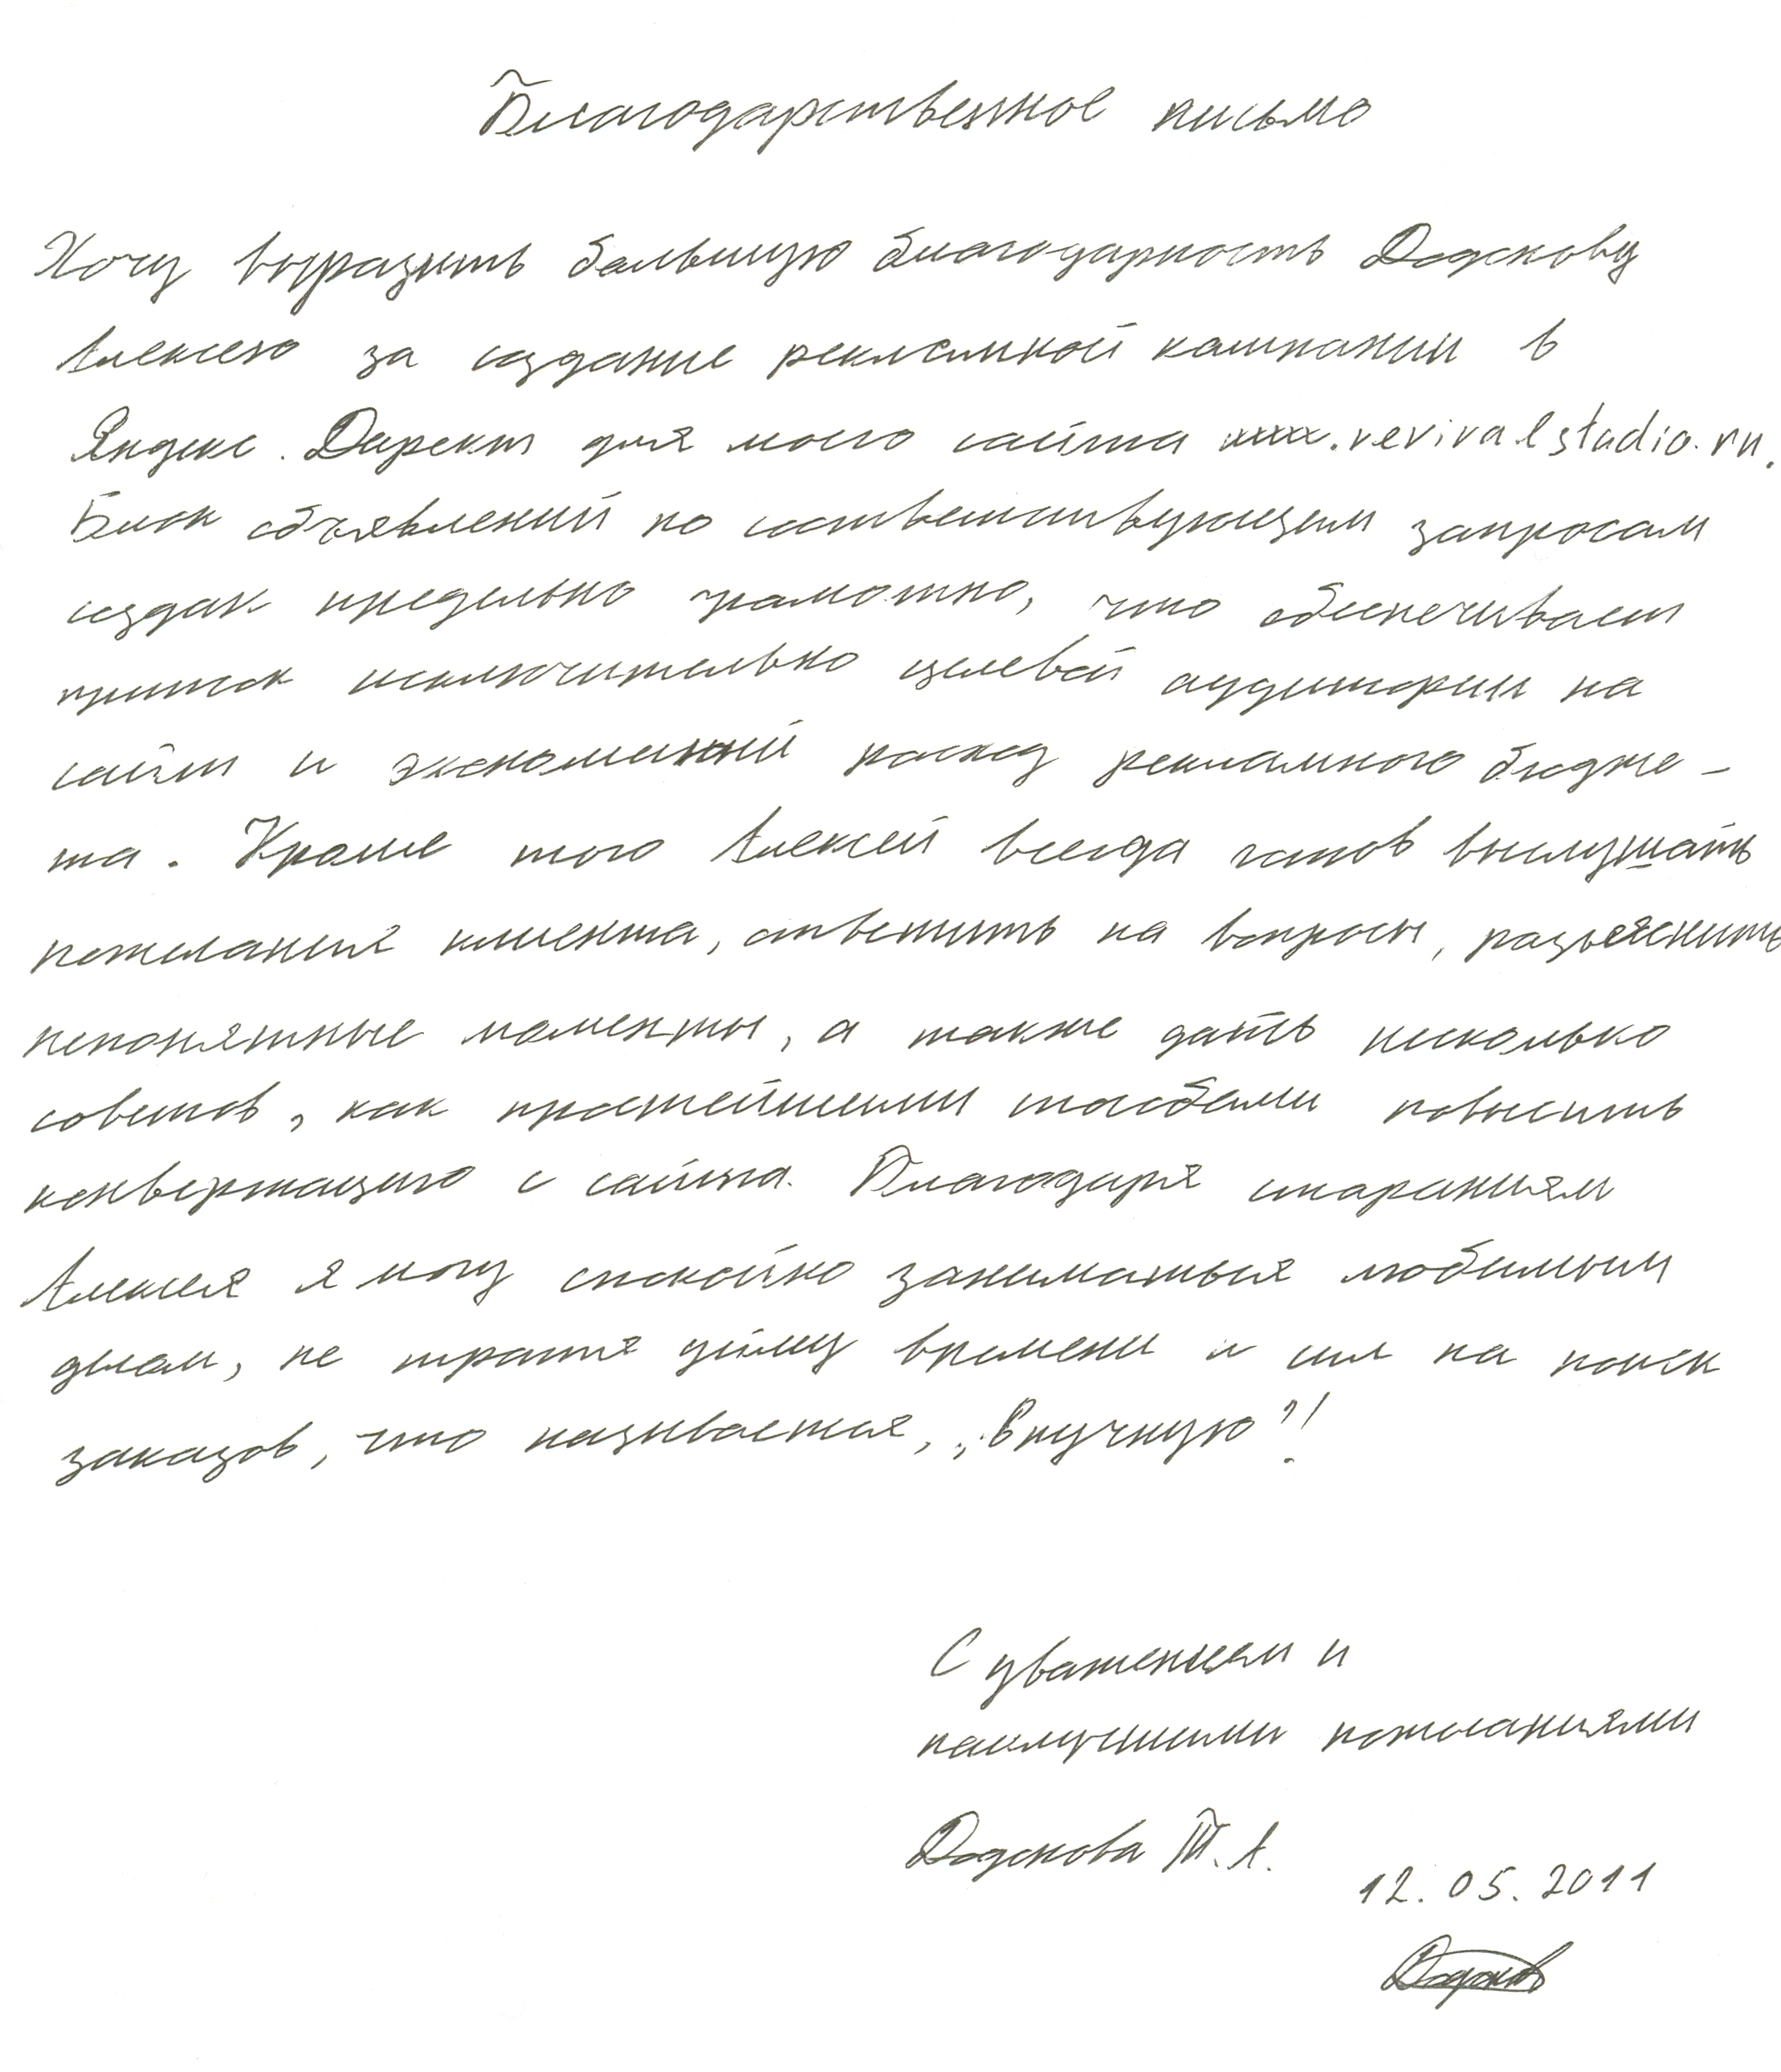 Благодарственное письмо
Хочу выразить большую благодарность Додонову
Алексею за создание рекламной кампании в
Яндекс. Директ для моего сайта www.revivalstudio.ru.
Блок объявлений по соответствующим запросам
создан предельно грамотно, что обеспечивает
приток исключительно целевой аудитории на
сайт и экономный расход рекламного бюдже-
та. Кроме того Алексей всегда готов выслушать
пожелания клиента, ответить на вопросы, разъяснить
непонятные моменты, а также дать несколько
советов, как простейшими способами повысить
конвертацию с сайта. Благодаря стараниям
Алексея я могу спокойно заниматься любимым
делом, не тратя уйму времени и сил на поиск
заказов, что называется, „вручную"!
С уважением и
наилучшими пожеланиями
Додонова Т. А.
12.05.2011